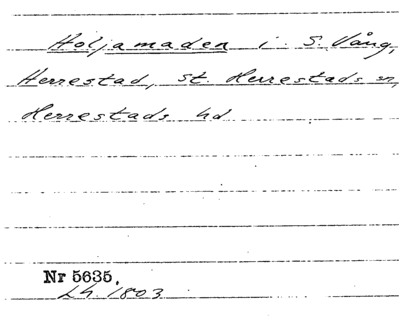 Höljamaden i S. Vång,
Herrestad, St Herrestads sn,
Herrestads hd
Nr 5635.
LH 1803